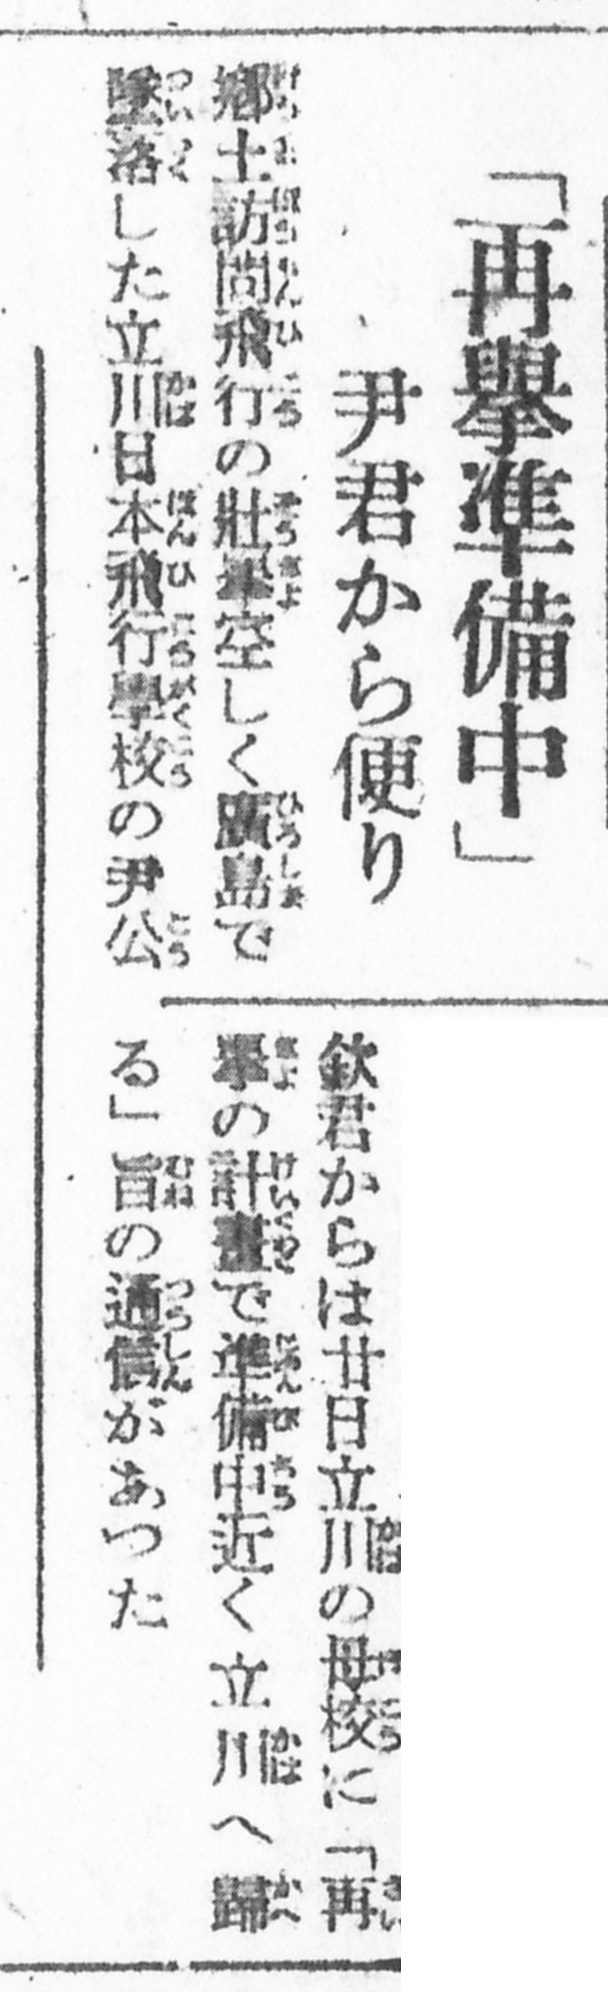 「再擧準備中」
尹君から便り
鄕土訪問飛行の壯擧空しく廣島で
墜落した立川日本飛行學校の尹公
欽君からは廿日立川の母校に「再
擧の計畫で準備中近く立川へ歸
る」旨の通信があつた